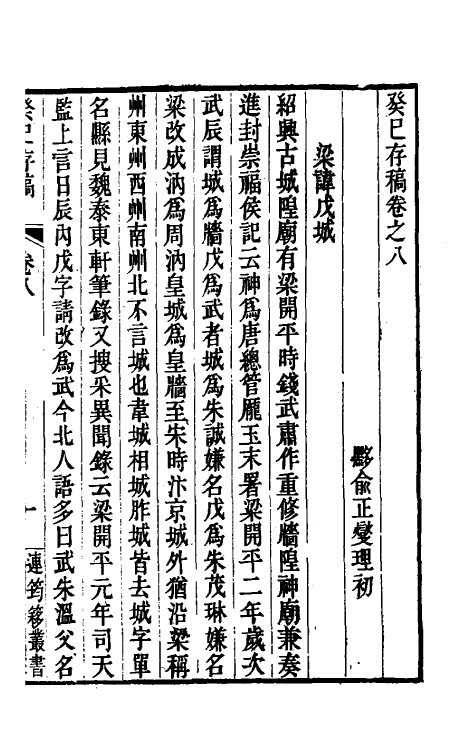 癸巳存稿卷之八
黟俞正燮理初
梁諱戊城
紹興古城隍廟有梁開平時錢武肅作重修牆隍神廟兼奏
進封崇福侯記云神爲唐總管龐玉末署梁開平二年歲次
武辰謂城爲牆戊爲武者城爲朱誠嫌名戊爲朱茂琳嫌名
梁改成汭爲周汭皇城爲皇牆至宋時汴京城外猶沿梁稱
州東州西州南州北不言城也韋城相城胙城皆去城字單
名縣見魏泰東軒筆錄又搜采異聞錄云梁開平元年司天
監上言日辰內戊字請改爲武今北人語多曰武朱溫父名
癸巳存稿
卷八
一
連筠簃叢書